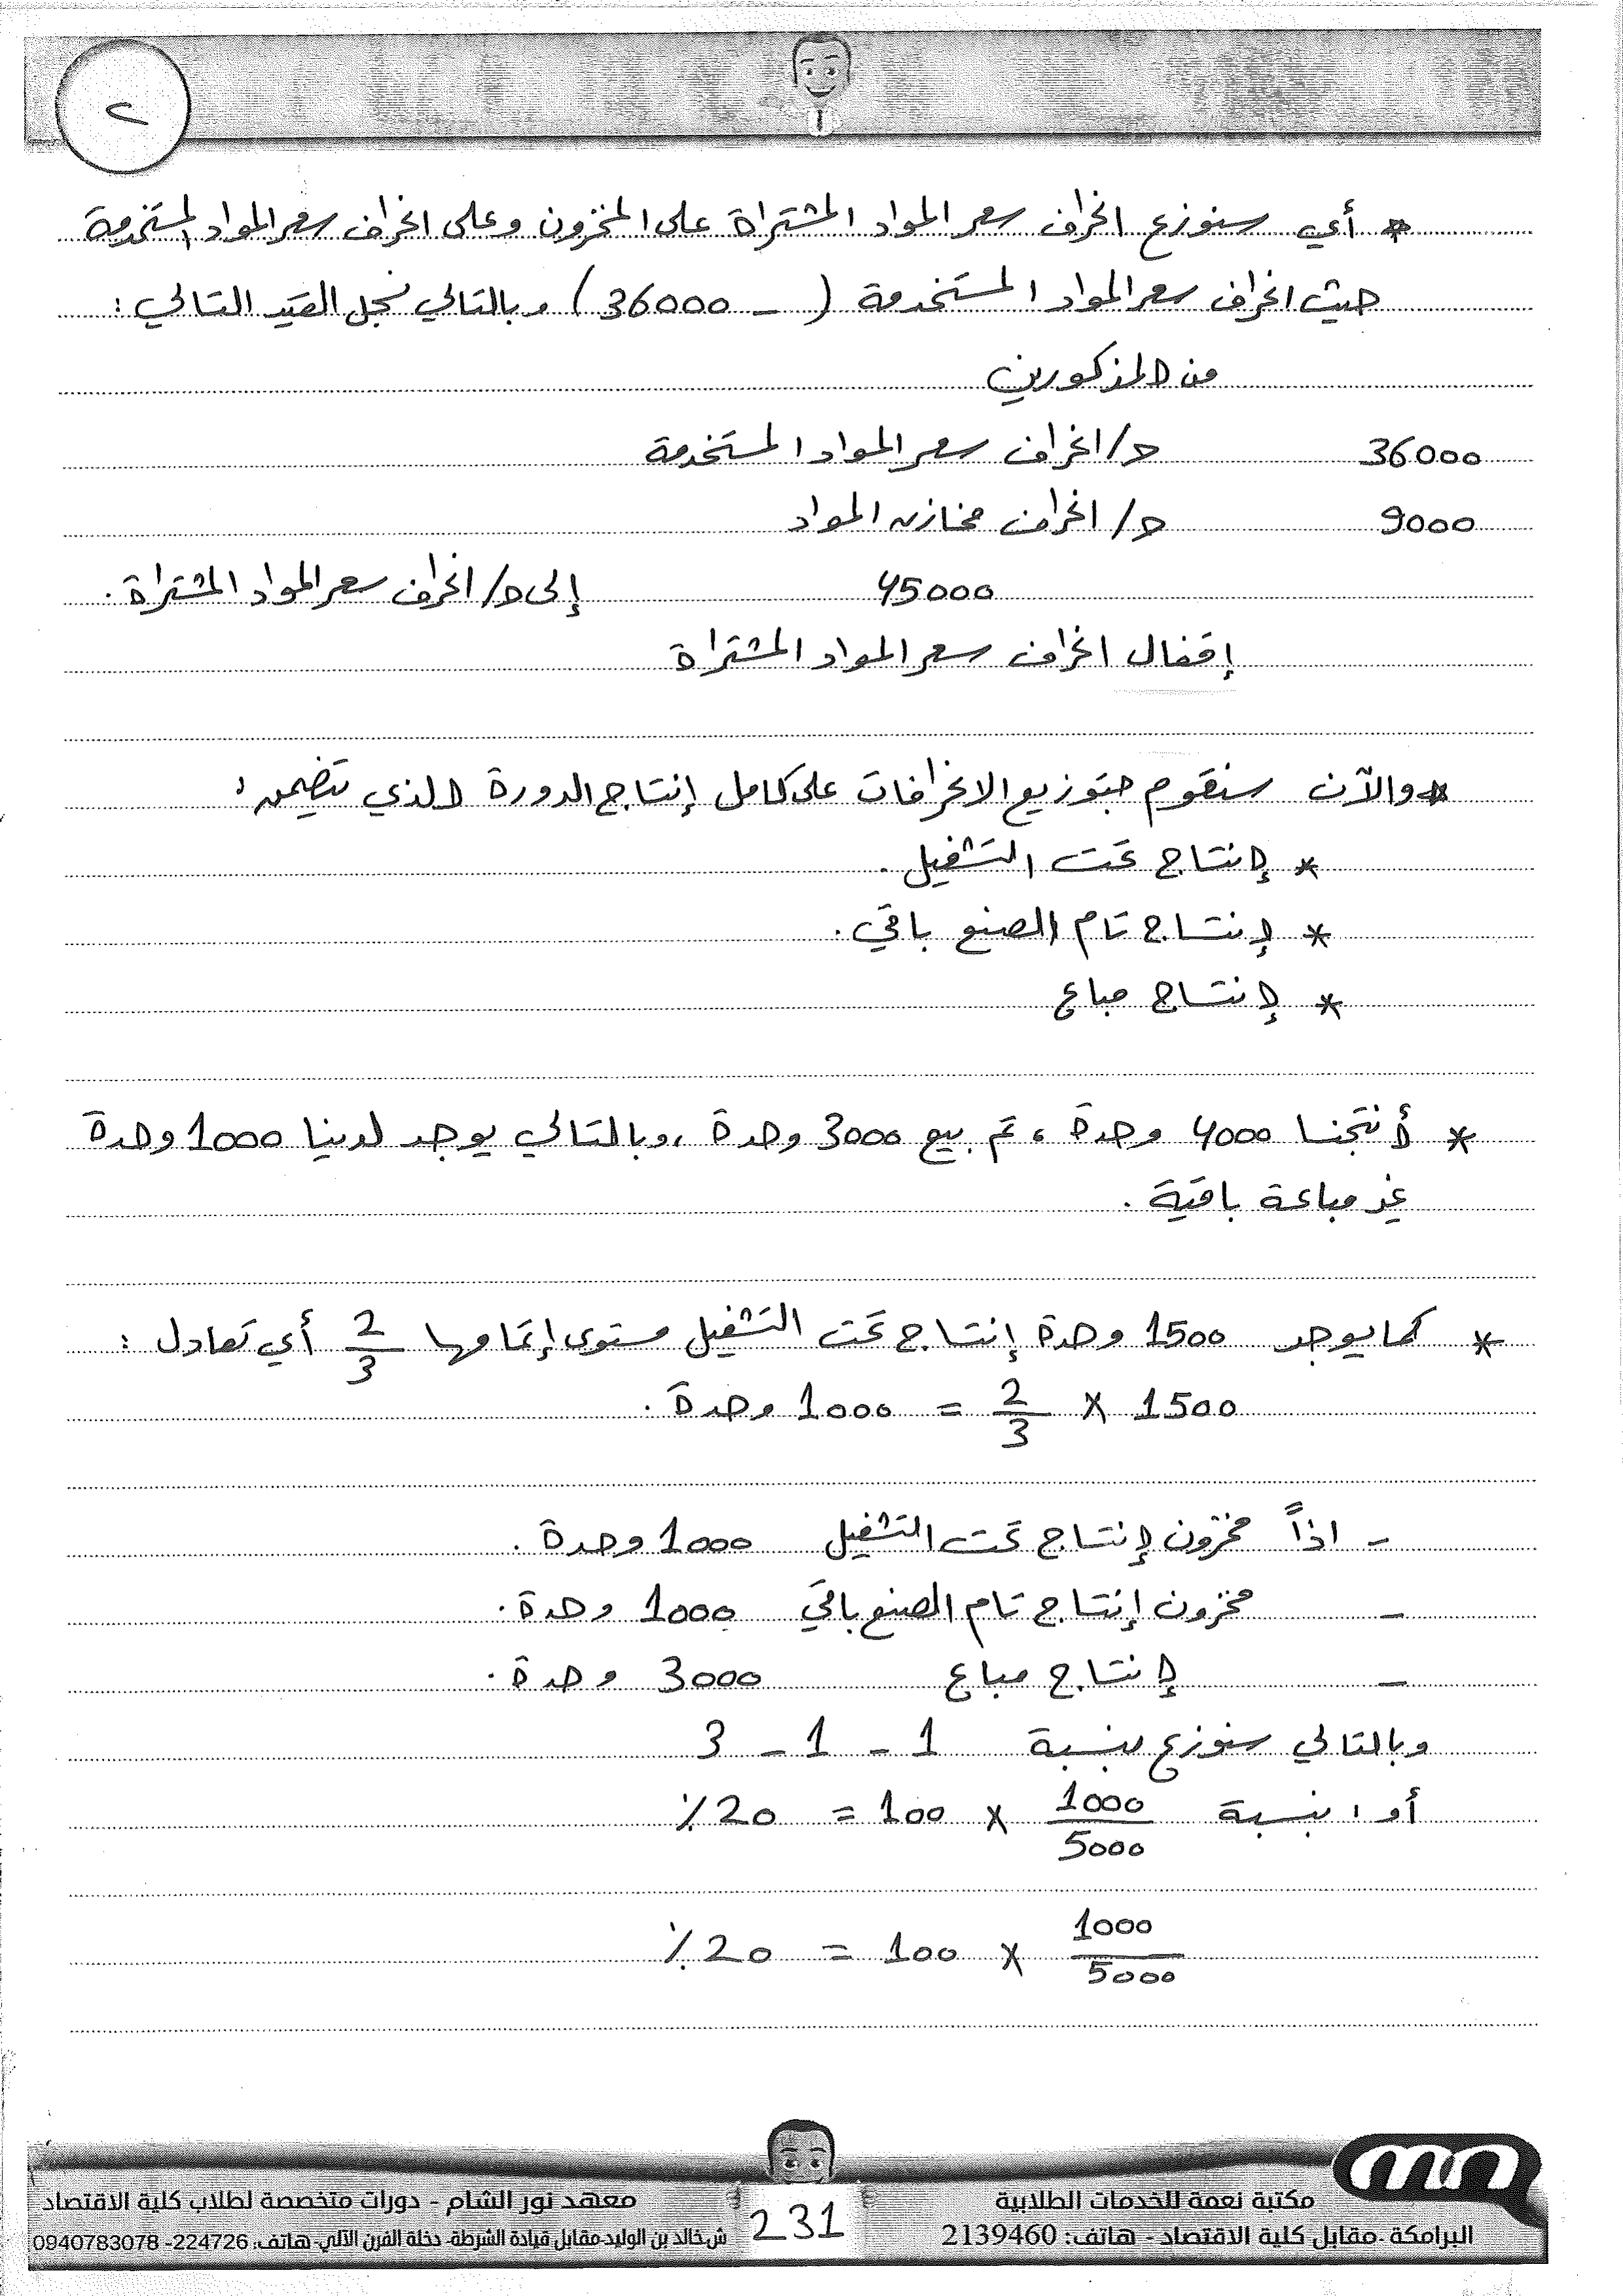 ٢
* أي سنوزع انحراف سعر المواد المشتراة على المخزون وعلى انحراف سعر المواد المستخدمة
حيث انحراف سعر المواد المستخدمة (36000 -) وبالتالي نسجل القيد التالي :
من المذكورين
36000 ح/ انحراف سعر المواد المستخدمة
9000 ح/ انحراف مخازن المواد
45000 إلى ح/ انحراف سعر المواد المشتراة .
إقفال انحراف سعر المواد المشتراة
* والآن سنقوم بتوزيع الانحرافات على كامل إنتاج الدورة الذي يتضمن :
* إنتاج تحت التشغيل .
* إنتاج تام الصنع باقي .
* إنتاج مباع
* أنتجنا 4000 وحدة ، تم بيع 3000 وحدة ، وبالتالي يوجد لدينا 1000 وحدة
غير مباعة باقية .
* كما يوجد 1500 وحدة إنتاج تحت التشغيل مستوى إتمامها 2/3 أي تعادل :
1500 × 2/3 = 1000 وحدة .
- اذاً مخزون إنتاج تحت التشغيل 1000 وحدة .
- مخزون إنتاج تام الصنع باقي 1000 وحدة .
- إنتاج مباع 3000 وحدة .
وبالتالي سنوزع بنسبة 1 - 1 - 3
أو : بنسبة 1000/5000 × 100 = 20 ٪
1000/5000 × 100 = 20 ٪
مكتبة نعمة للخدمات الطلابية
البرامكة - مقابل كلية الاقتصاد - هاتف : 2139460
231
معهد نور الشام - دورات متخصصة لطلاب كلية الاقتصاد
ش خالد بن الوليد مقابل قيادة الشرطة - دخلة الفرن الآلي - هاتف: 224726 - 0940783078